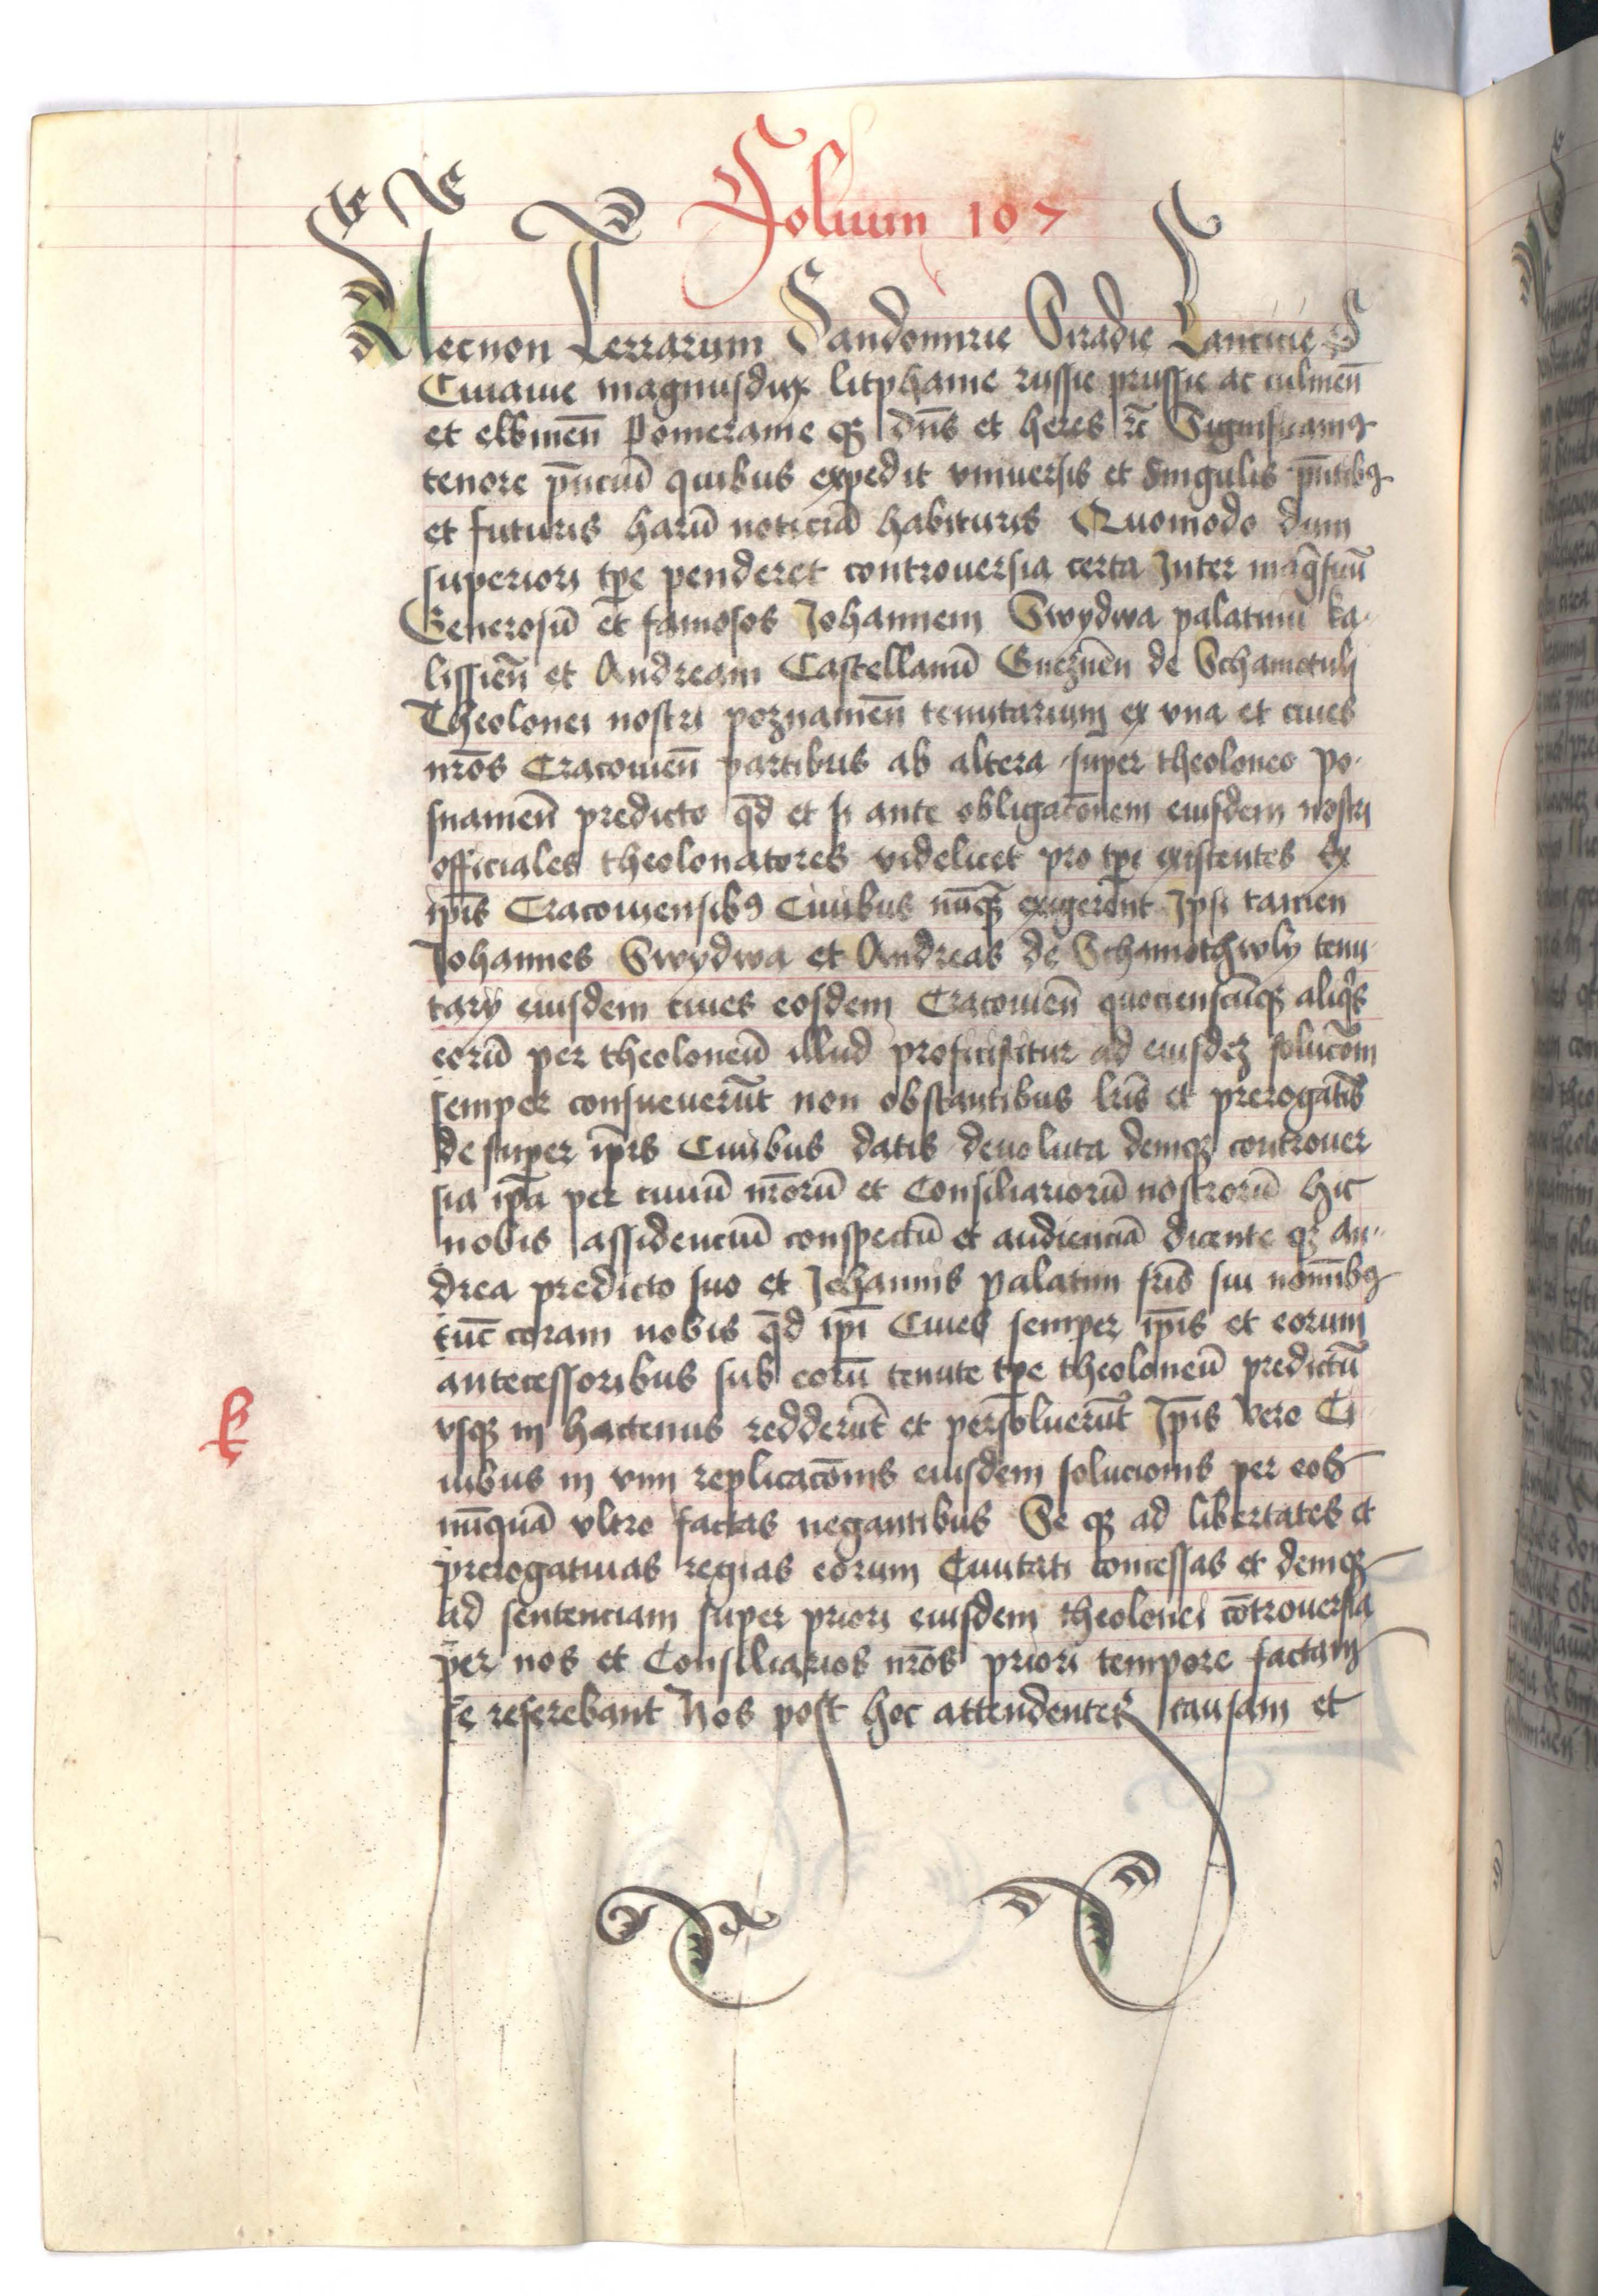 Folium 107
Necnon Terrarum Sandomirie Siradie Lancicie
Cuiauie magnusdux litphanie russie prussie ac culmen̄
et elbinen̄ Pomeranie qȝ dn̄s et heres rc̄ Significamꝯ
tenore p̄nciū quibus expedit vniuersis et singulis p̄ntibꝯ
et futuris harū noticiā habituris Quomodo dum
superiori tp̄e penderet controuersia certa Inter maḡficū
Generosū et famosos Johannem Swydwa palatinū ka
lissien̄ et Andream Castellanū Gneznen̄ de Schamotuli
Theolonei nostri poznanien̄ tenutarium ex vna et ciues
nr̄os Cracouien̄ partibus ab altera super theoloneo po
snanien̄ predicto qd̄ et si ante obligacōnem eiusdem nostri
officiales theolonatores videlicet pro tp̄e existentes Ex
ip̄is Cracouiensibꝯ Ciuibus nūqȝ exigerent Ipsi tamen
Johannes Swydwa et Andreas de Schamothwly tenu
tarij eiusdem ciues eosdem Cracouien̄ quocienscūqȝ aliq̄s
eorū per theoloneū illud proficiscitur ad eiusdeȝ solucōm
semper consueuerūt non obstantibus lr̄is et prerogat̄is
de super ip̄is Ciuibus datis deuoluta demqȝ controuer
sia ip̄a per ciuiū nr̄orū et Consiliariorū nostrorū hic
nobis assidenciū conspectū et audienciā dicente qȝ an
drea predicto suo et Johannis palatini fr̄is sui nom̄ibꝯ
tūc coram nobis qd̄ ip̄i Ciues semper ip̄is et eorum
antecessoribus sub eorū tenute tp̄e theoloneū predictū
vsqȝ in hactenus redderūt et persoluerūt Ip̄is vero Ci
uibus in vim replicacōnis eiusdem solucionis per eos
nūquā vltro factas negantibus Se qȝ ad libertates et
prerogatiuas regias eorum Ciuitati concessas et demqȝ
ad sentenciam super priori eiusdem theolonei cōtrouersia
per nos et Consiliarios nr̄os priori tempore factam
se referebant Nos post hoc attendentes causam et